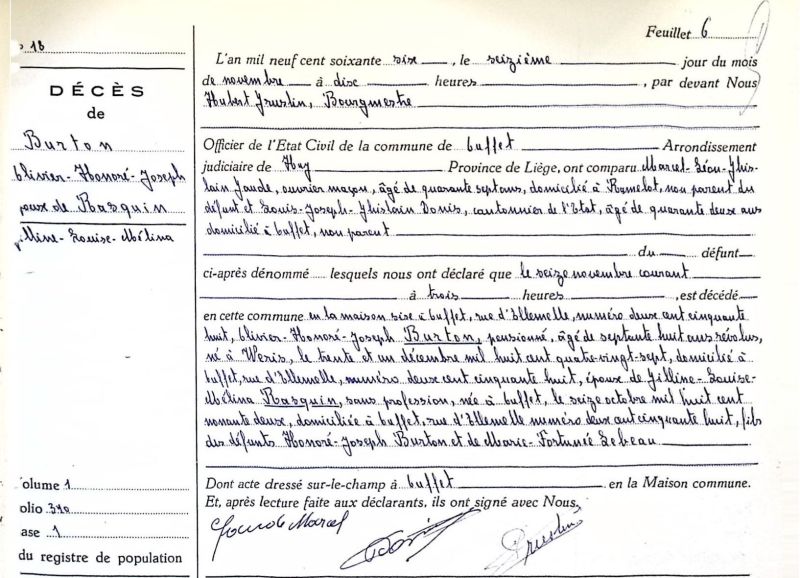 Feuillet 6
18
DÉCÈS
de
Burton
Olivier-Honoré-Joseph
époux de Rasquin
Line-Louise-Mélina
olume 1
olio 390
ase 1
du registre de population
L'an mil neuf cent soixante six, le seizième jour du mois
de novembre à dix heures, par devant Nous
Hubert Bourgmestre
Officier de l'Etat Civil de la commune de Ouffet Arrondissement
judiciaire de Huy Province de Liège, ont comparu Marcel-Léon-Ghis-
lain Jaude, ouvrier maçon, âgé de quarante sept ans, domicilié à Ramelot, non parent du
défunt et Louis-Joseph-Ghislain Donis, cantonnier de l'Etat, âgé de quarante deux ans
domicilié à Ouffet, non parent
du défunt
ci-après dénommé lesquels nous ont déclaré que le seize novembre courant
à trois heures, est décédé
en cette commune en la maison sise à Ouffet, rue d'Ellemelle, numéro deux cent cinquante
huit, Olivier-Honoré-Joseph Burton, pensionné, âgé de septante huit ans révolus,
né à Weris, le trente et un décembre mil huit cent quatre-vingt-sept, domicilié à
Ouffet, rue d'Ellemelle, numéro deux cent cinquante huit, époux de -Louise-
Mélina Rasquin, sans profession, née à Ouffet, le seize octobre mil huit cent
nonante deux, domiciliée à Ouffet, rue d'Ellemelle numéro deux cent cinquante huit, fils
des défunts Honoré-Joseph Burton et de Marie-Fortunée Lebeau
Dont acte dressé sur-le-champ à Ouffet en la Maison commune.
Et, après lecture faite aux déclarants, ils ont signé avec Nous.